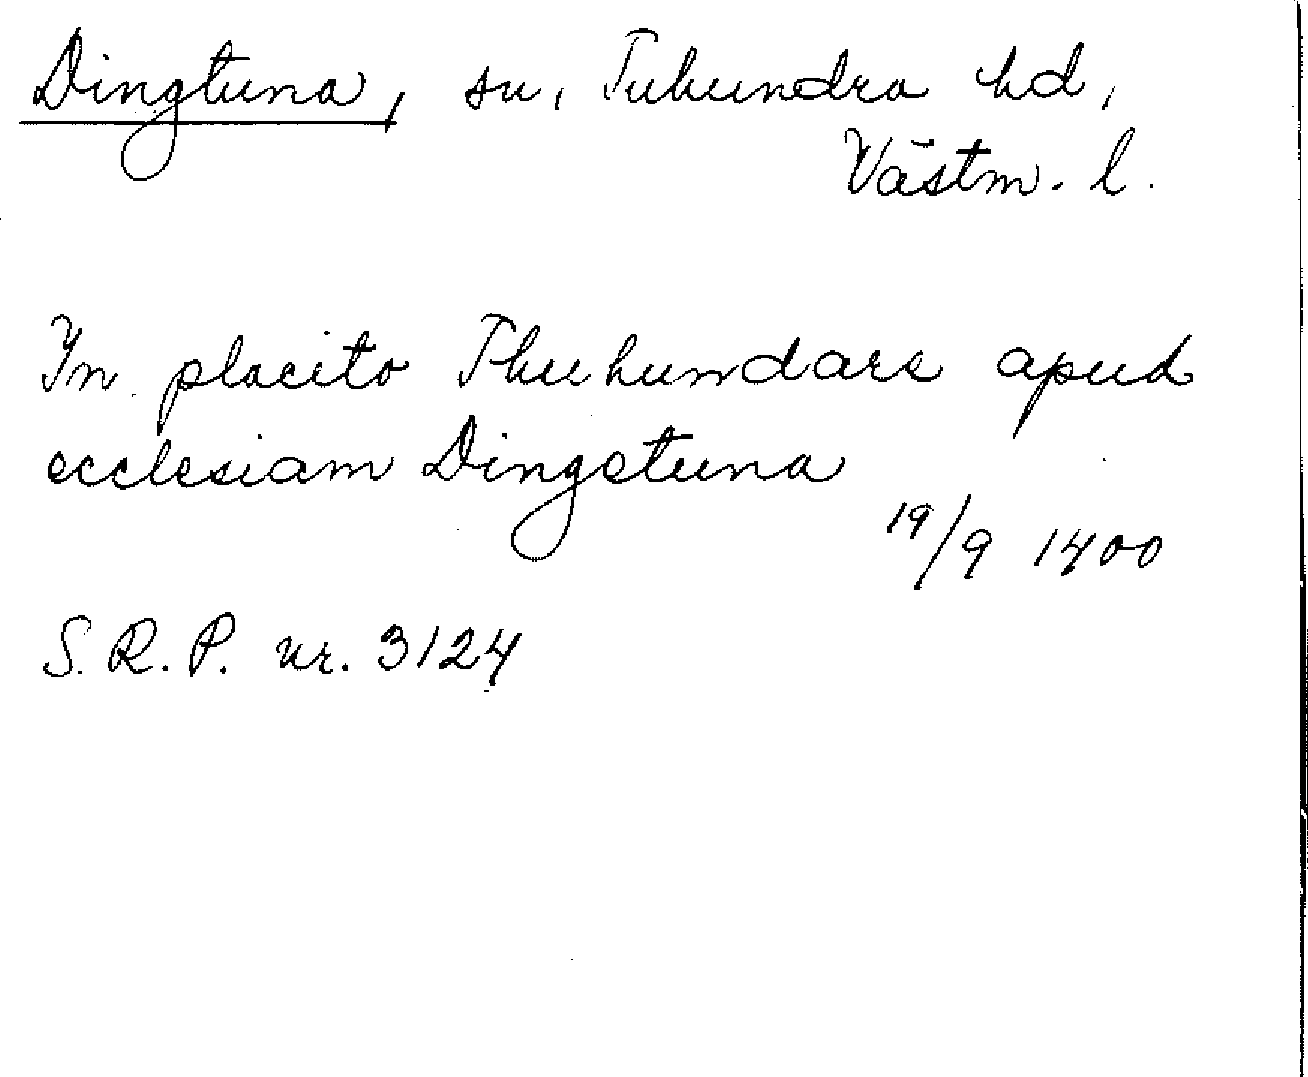 Dingtuna, sn, Tuhundra hd,
Västm. l.
In placito Thuhundare apud
ecclesiam Dingetuna
19/9 1400
S.R.P. nr. 3124